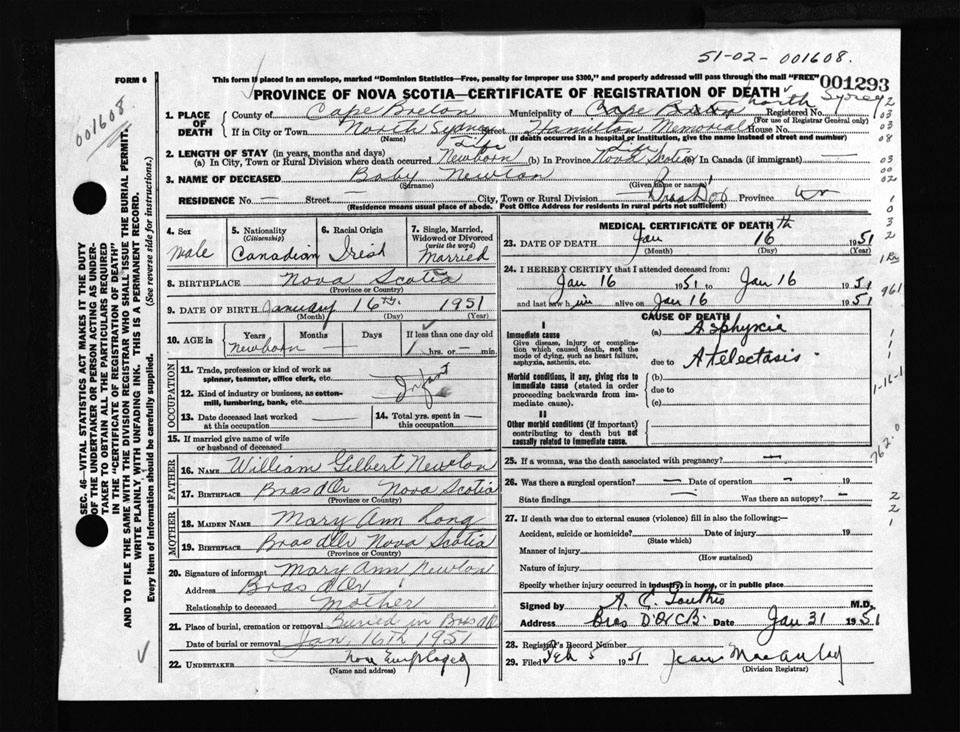 51-02-001608.
FORM 6
This form if placed in an envelope, marked "Dominion Statistics—Free, penalty for improper use $300," and properly addressed will pass through the mail "FREE"
001293
PROVINCE OF NOVA SCOTIA—CERTIFICATE OF REGISTRATION OF DEATH
001608
1. PLACE OF DEATH
County of Cape Breton Municipality of Cape Breton Registered No.
North Sydney
(For use of Registrar General only)
If in City or Town North Sydney Street Hamilton Memorial House No.
(Name) (If death occurred in a hospital or institution, give the name instead of street and number)
2. LENGTH OF STAY (in years, months and days)
Life Life
(a) In City, Town or Rural Division where death occurred Newborn (b) In Province Nova Scotia (c) In Canada (if immigrant) —
3. NAME OF DECEASED Baby Newton
(Surname) (Given name or names)
RESIDENCE No. — Street City, Town or Rural Division Bras D'Or Province
(Residence means usual place of abode. Post Office Address for residents in rural parts not sufficient)
4. Sex
Male
5. Nationality
(Citizenship)
Canadian
6. Racial Origin
Irish
7. Single, Married, Widowed or Divorced
(write the word)
Married
8. BIRTHPLACE Nova Scotia
(Province or Country)
9. DATE OF BIRTH January 16th. 1951
(Month) (Day) (Year)
10. AGE in Years Months Days If less than one day old
Newborn — 1 hrs. or min.
OCCUPATION
11. Trade, profession or kind of work as spinner, teamster, office clerk, etc.
Infant
12. Kind of industry or business, as cotton-mill, lumbering, bank, etc.
13. Date deceased last worked at this occupation —
14. Total yrs. spent in this occupation —
15. If married give name of wife or husband of deceased
FATHER
16. NAME William Gilbert Newton
17. BIRTHPLACE Bras d'Or Nova Scotia
(Province or Country)
MOTHER
18. MAIDEN NAME Mary Ann Long
19. BIRTHPLACE Bras d'Or Nova Scotia
(Province or Country)
20. Signature of informant Mary Ann Newton
Address Bras d'Or
Relationship to deceased Mother
21. Place of burial, cremation or removal Buried in Bras d'Or
Date of burial or removal Jan. 16th 1951
22. UNDERTAKER None Employed
(Name and address)
MEDICAL CERTIFICATE OF DEATH
23. DATE OF DEATH Jan 16th 1951
(Month) (Day) (Year)
24. I HEREBY CERTIFY that I attended deceased from:
Jan 16 1951 to Jan 16 1951
and last saw him alive on Jan 16 1951
CAUSE OF DEATH
I
Immediate cause
Give disease, injury or complication which caused death, not the mode of dying, such as heart failure, asphyxia, asthenia, etc.
(a) Asphyxia
due to Atelectasis.
Morbid conditions, if any, giving rise to immediate cause (stated in order proceeding backwards from immediate cause).
(b)
due to
(c)
II
Other morbid conditions (if important) contributing to death but not causally related to immediate cause.
25. If a woman, was the death associated with pregnancy? —
26. Was there a surgical operation? — Date of operation — 19
State findings — Was there an autopsy? —
27. If death was due to external causes (violence) fill in also the following:—
Accident, suicide or homicide? Date of injury 19
(State which)
Manner of injury
(How sustained)
Nature of injury
Specify whether injury occurred in industry, in home, or in public place
Signed by M.D.
Address Bras D'Or C.B. Date Jan 31 1951
28. Registrar's Record Number
29. Filed Feb 5 1951 Jean MacAulay
(Division Registrar)
SEC. 46—VITAL STATISTICS ACT MAKES IT THE DUTY
OF THE UNDERTAKER OR PERSON ACTING AS UNDER-
TAKER TO OBTAIN ALL THE PARTICULARS REQUIRED
IN THE "CERTIFICATE OF REGISTRATION OF DEATH"
AND TO FILE THE SAME WITH THE DIVISION REGISTRAR WHO SHALL ISSUE THE BURIAL PERMIT.
WRITE PLAINLY WITH UNFADING INK. THIS IS A PERMANENT RECORD.
Every item of information should be carefully supplied. (See reverse side for instructions.)
2
03
03
08
03
00
02
1
0
3
2
961
1
1
1
1-16-1
762.0
2
2
1